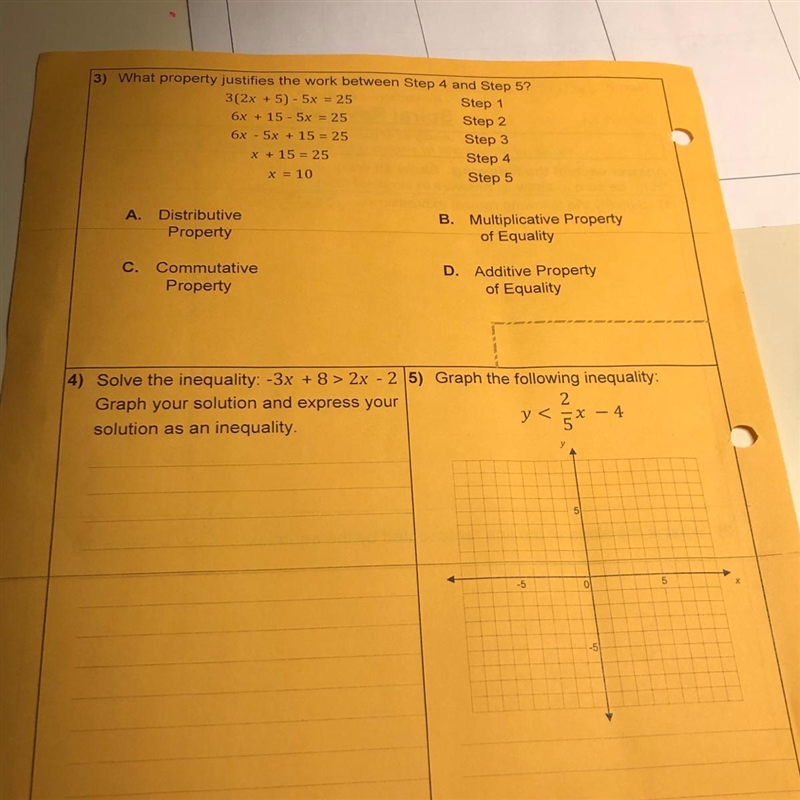 3) What property justifies the work between Step 4 and Step 5?
3(2x + 5) - 5x = 25 Step 1
6x + 15 - 5x = 25 Step 2
6x - 5x + 15 = 25 Step 3
x + 15 = 25 Step 4
x = 10 Step 5
A. Distributive
Property
B. Multiplicative Property
of Equality
C. Commutative
Property
D. Additive Property
of Equality
4) Solve the inequality: -3x + 8 > 2x - 2
Graph your solution and express your
solution as an inequality.
5) Graph the following inequality:
y < 2/5 x - 4
y
5
-5 0 5 x
-5